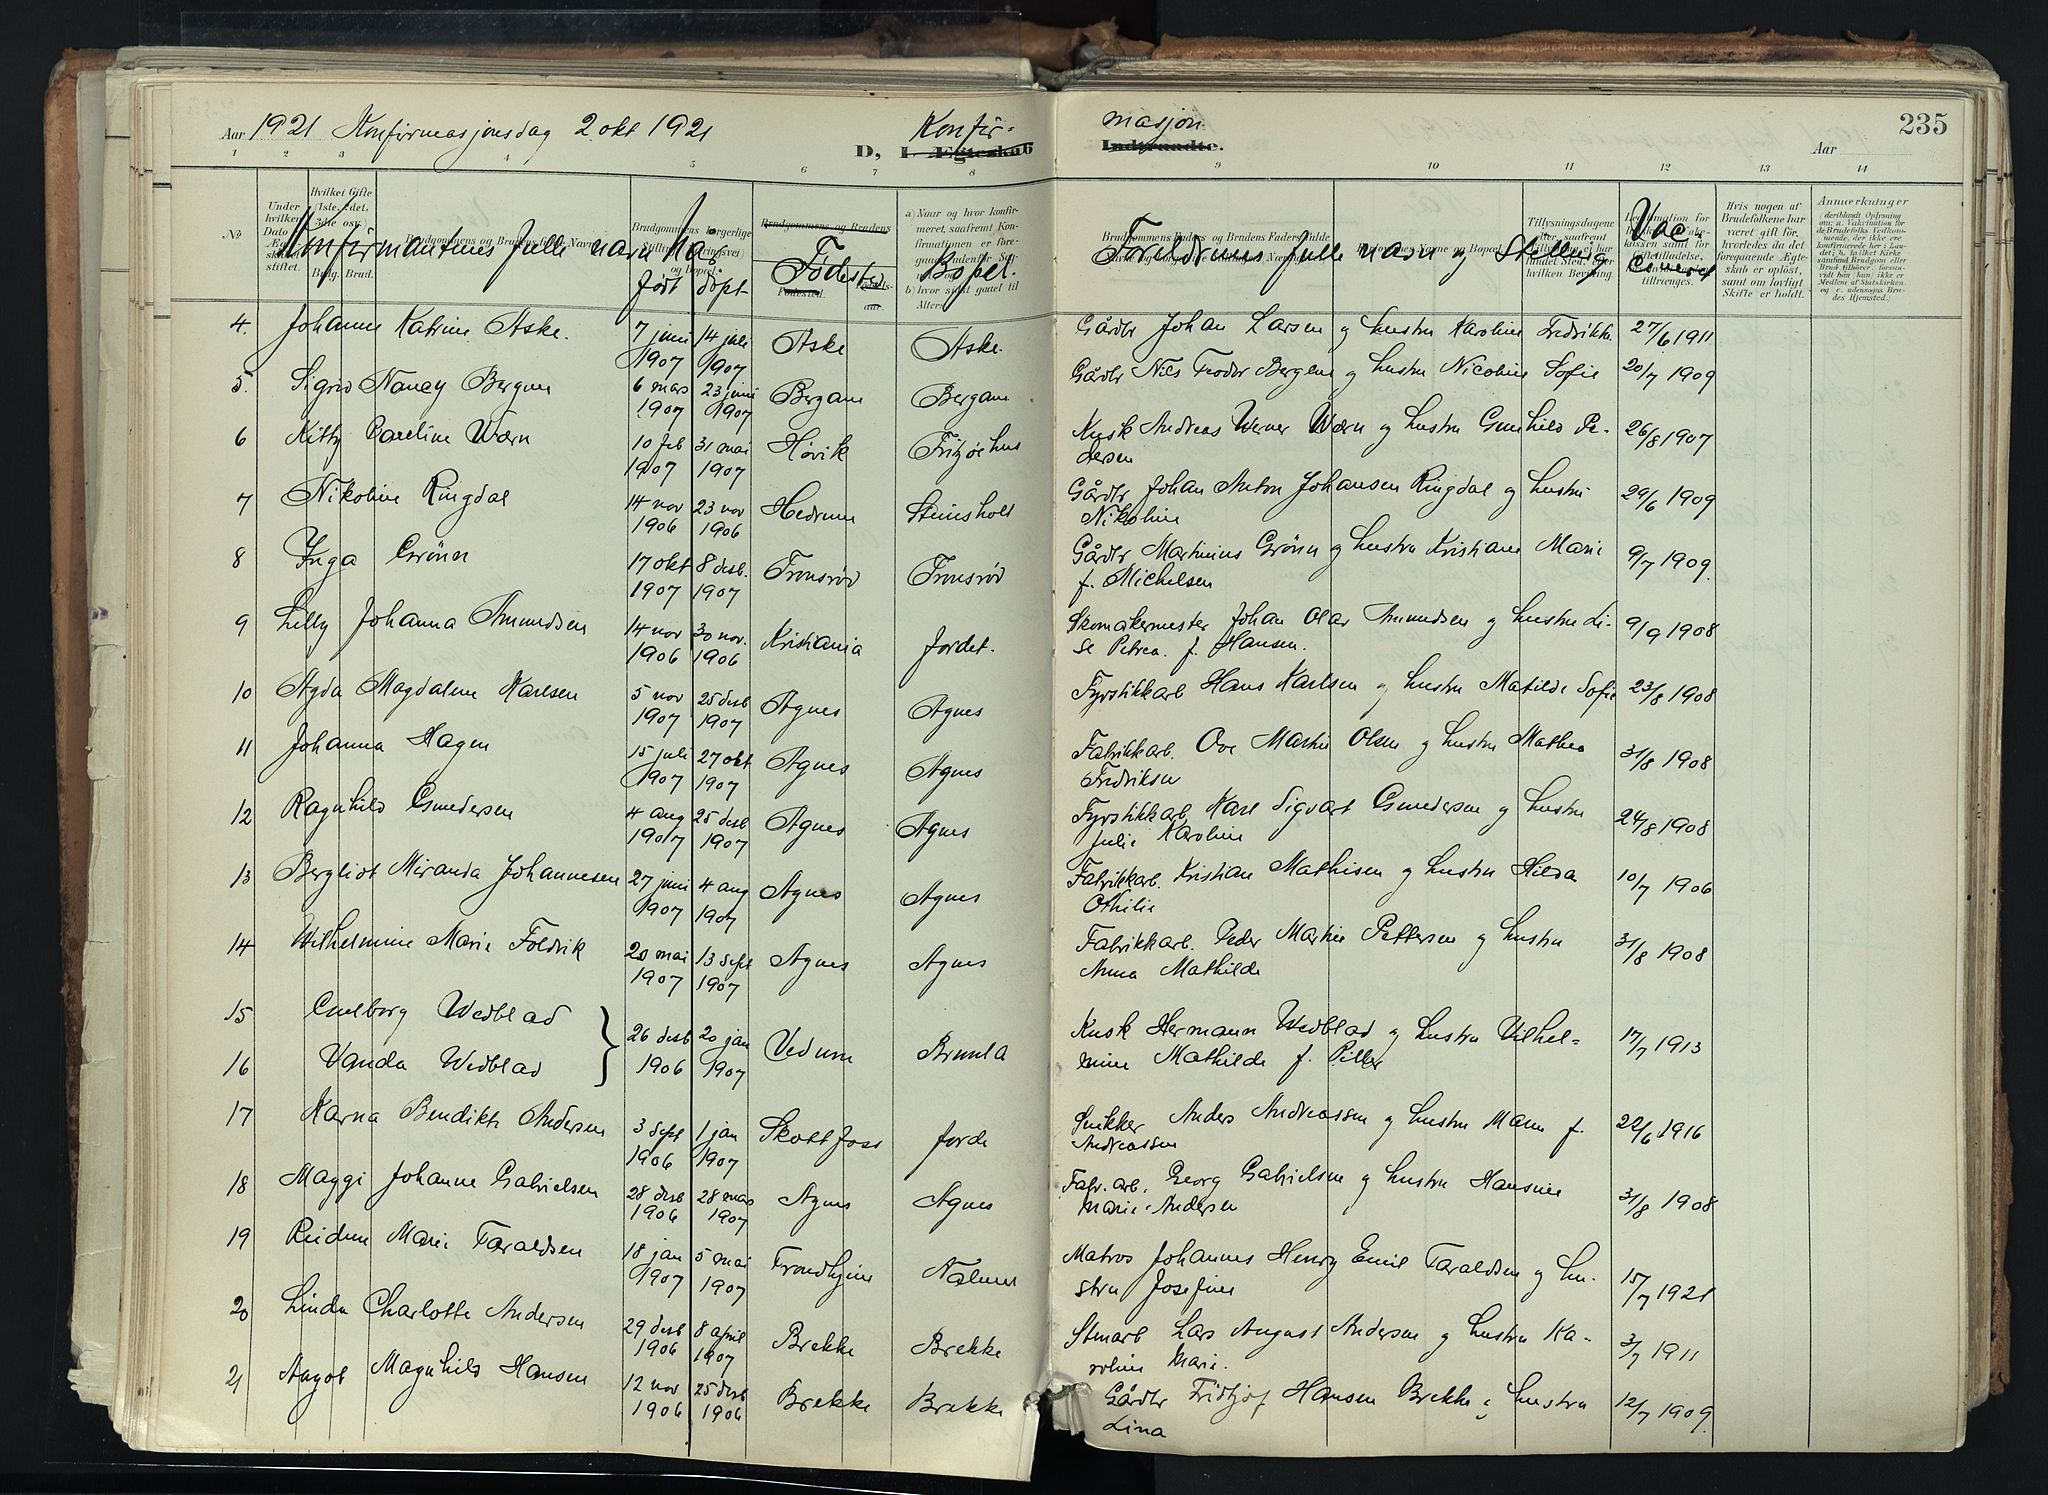 Aar 1921 Konfirmasjonsdag 2. okt 1921 Konfir=
masjon 235
D, I. Ægteskab Indtraadte. Aar
1 2 3 4 5 6 7 8 9 10 11 12 13 14
No. Konfirmantens fulle navn Født døpt Fødested Bopel.
Foreldrenes fulle navn og Stelling Vac
4. Johanne Katrine Aske. 7 juni 1907 14 juli 1907 Aske Aske. Gårdbr Johan Larsen og hustru Karoline Fredrikke. 27/6 1911
5. Sigrid Nancy Bergan 6 mars 1907 23 juni 1907 Bergan Bergan Gårdbr Nils Teodor Bergan og hustru Nicoline Sofie 20/7 1909
6 Kitty Caroline Wærn 10 feb 1907 31 mai 1907 Høvik Fritzøehus Kusk Andreas Werner Wærn og hustru Gunhild Pe-
dersen 26/8 1907
7 Nikoline Ringdal 14 nov 1906 23 nov 1906 Hedrum Steinsholt Gårdbr Johan Anton Johansen Ringdal og hustru
Nikoline 29/6 1909
8 Inga Grönn 17 okt 1907 8 desb. 1907 Tronsrød Tronsrød Gårdbr Martinius Grönn og hustru Kristiane Marie
f. Michelsen 9/7 1909.
9 Lilly Johanna Amundsen 14 nov 1906 30 nov. 1906 Kristiania Jordet. Skomakermester Johan Olav Amundsen og hustru Li-
se Petrea. f. Hansen. 9/9 1908
10 Agda Magdalene Karlsen 5 nov 1907 25 desb 1907 Agnes Agnes Fyrstikkarb Hans Karlsen og hustru Matilde Sofie 23/8 1908
11 Johanna Hagen 15 juli 1907 27 okt 1907 Agnes Agnes Fabrikkarb. Ove Martin Olsen og hustru Mathea
Fredriksen 31/8 1908
12 Ragnhild Gundersen 4 aug 1907 25 desb 1907 Agnes Agnes Fyrstikkarb. Karl Sigvart Gundersen og hustru
Julie Karoline 24/8 1908
13 Bergliot Miranda Johannesen 27 juni 1907 4 aug 1907 Agnes Agnes Fabrikkarb. Kristian Mathisen og hustru Hilda
Othilie 10/7 1906
14 Wilhelmine Marie Foldvik 20 mai 1907 13 sept 1907 Agnes Agnes Fabrikkarb. Peder Martin Pettersen og hustru
Anna Mathilde 31/8 1908
15 Gudborg Wedblad
16 Vanda Wedblad 26 desb 1906 20 jan 1907 Vedum Brunla Kusk Hermann Wedblad og hustru Vilhel=
mine Mathilde f. Piller 17/7 1913
17 Karna Bendikte Andersen 3 sept 1906 1 jan 1907 Skotfoss Jorde Snikker Anders Andreassen og hustru Maren f.
Andreassen 22/6 1916
18 Maggi Johanne Gabrielsen 28 desb 1906 28 mars 1907 Agnes Agnes Fabr. arb. Georg Gabrielsen og hustru Hansine
Marie Andersen 31/8 1908
19 Reidun Marie Taraldsen 18 jan 1907 5 mai 1907 Trondhjem Nalum Matros Johannes Henry Emil Taraldsen og hu-
stru Josefine 15/7 1921
20 Linda Charlotte Andersen 29 desb 1906 8 april 1907 Brekke Brekke Stenarb Lars August Andersen og hustru Ka-
roline Marie. 3/7 1911
21 Aagot Magnhild Hansen 12 nov 1906 25 desb 1906 Brekke Brekke Gårdbr Fridtjof Hansen Brekke og hustru
Lina 12/7 1909.